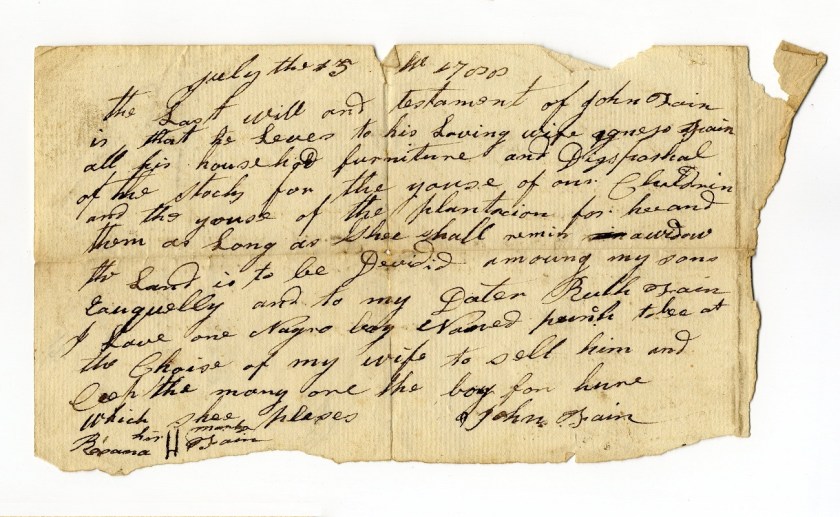 July the 25 17
the Last will and testament of John Fain
is that he Leves to his Loving wife Agness Fain
all his househod furniture and Disposhal
of the stock for the youse of our Children
and the youse of the plantacion for hee and
them as Long as Shee shall remin a widow
the Land is to be Devidid amoung my sons
Eaquelly and to my Dater Ruth Fain
I Leave one Negro boy Named to be at
the Choise of my wife to sell him and
Ceep the mony ore the boy for hure
which shee pleses John Fain
his marke
Roxana H Fain